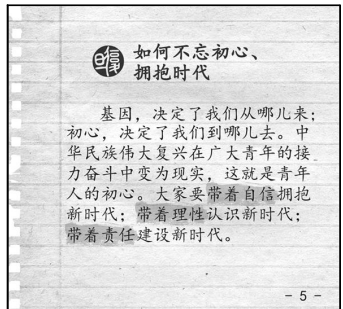 如何不忘初心、
拥抱时代
基因，决定了我们从哪儿来；
初心，决定了我们到哪儿去。中
华民族伟大复兴在广大青年的接
力奋斗中变为现实，这就是青年
人的初心。大家要带着自信拥抱
新时代；带着理性认识新时代；
带着责任建设新时代。
- 5 -